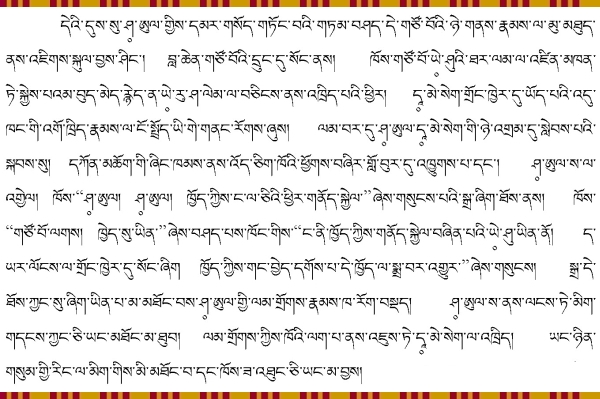 དེའི་དུས་སུ་ཤཱ་ཨུལ་གྱིས་དམར་གསོད་གཏོང་བའི་གཏམ་བཤད་དེ་གཙོ་བོའི་ཉེ་གནས་རྣམས་ལ་མུ་མཐུད་
ནས་འཇིགས་སྐུལ་བྱས་ཤིང་། བླ་ཆེན་གཙོ་བོའི་དྲུང་དུ་སོང་ནས། ཁོས་གཙོ་བོ་ཡེ་ཤུའི་ཐར་ལམ་ལ་འཛིན་མཁན་
ཏེ་སྐྱེས་པའམ་བུད་མེད་རྙེད་ན་ཡེ་རུ་ཤ་ལེམ་ལ་བཅིངས་ནས་འཁྲིད་པའི་ཕྱིར། དཱ་མེ་སེག་གྲོང་ཁྱེར་དུ་ཡོད་པའི་འདུ་
ཁང་གི་འགོ་ཁྲིད་རྣམས་ལ་ངོ་སྤྲོད་ཡི་གེ་གནང་རོགས་ཞུས། ལམ་བར་དུ་ཤཱ་ཨུལ་དཱ་མེ་སེག་གི་ཉེ་འགྲམ་དུ་སླེབས་པའི་
སྐབས་སུ། དཀོན་མཆོག་གི་ཞིང་ཁམས་ནས་འོད་ཅིག་ཁོའི་ཕྱོགས་བཞིར་གློ་བུར་དུ་འཁྱུགས་པ་དང་། ཤཱ་ཨུལ་ས་ལ་
འགྱེལ། ཁོས་“ཤཱ་ཨུལ། ཤཱ་ཨུལ། ཁྱོད་ཀྱིས་ང་ལ་ཅིའི་ཕྱིར་གནོད་སྐྱེལ་”ཞེས་གསུངས་པའི་སྒྲ་ཞིག་ཐོས་ནས། ཁོས་
“གཙོ་བོ་ལགས། ཁྱེད་སུ་ཡིན་”ཞེས་བཤད་པས་ཁོང་གིས་“ང་ནི་ཁྱོད་ཀྱིས་གནོད་སྐྱེལ་བཞིན་པའི་ཡེ་ཤུ་ཡིན་ནོ། ད་
ཡར་ལོངས་ལ་གྲོང་ཁྱེར་དུ་སོང་ཞིག ཁྱོད་ཀྱིས་གང་བྱེད་དགོས་པ་དེ་ཁྱོད་ལ་སྨྲ་བར་འགྱུར་”ཞེས་གསུངས། སྒྲ་དེ་
ཐོས་ཀྱང་སུ་ཞིག་ཡིན་པ་མ་མཐོང་བས་ཤཱ་ཨུལ་གྱི་ལམ་གྲོགས་རྣམས་ཁ་རོག་བསྡད། ཤཱ་ཨུལ་ས་ནས་ལངས་ཏེ་མིག་
གདངས་ཀྱང་ཅི་ཡང་མཐོང་མ་ཐུབ། ལམ་གྲོགས་ཀྱིས་ཁོའི་ལག་པ་ནས་འཇུས་ཏེ་དཱ་མེ་སེག་ལ་འཁྲིད། ཡང་ཉིན་
གསུམ་གྱི་རིང་ལ་མིག་གིས་མི་མཐོང་བ་དང་ཁོས་ཟ་འཐུང་ཅི་ཡང་མ་བྱས།